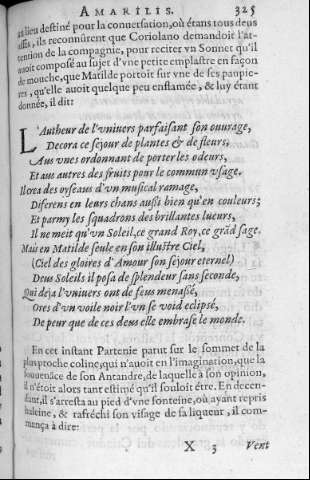 AMARILIS. 325
au lieu destiné pour la conuersation, où étans tous deus
assis, ils reconnûrent que Coriolano demandoit l'at-
tention de la compagnie, pour reciter vn Sonnet qu'il
auoit composé au sujet d'vne petite emplastre en façon
de mouche, que Matilde portoit sur vne de ses paupie-
res, qu'elle auoit quelque peu enflamée, & luy étant
donnée, il dit:
L'Autheur de l'vniuers parfaisant son ouurage,
Decora ce sejour de plantes & de fleurs,
Aus vnes ordonnant de porter les odeurs,
Et aus autres des fruits pour le commun vsage.
Il crea des oyseaus d'vn musical ramage,
Diferens en leurs chans aussi bien qu'en couleurs;
Et parmy les squadrons des brillantes lueurs,
Il ne meit qu'vn Soleil, ce grand Roy, ce grãd sage.
Mais en Matilde seule en son illustre Ciel,
(Ciel des gloires d'Amour son sejour eternel)
Deus Soleils il posa de splendeur sans seconde,
Qui deja l'vniuers ont de feus menassé,
Ores d'vn voile noir l'vn se void eclipsé,
De peur que de ces deus elle embrase le monde.
En cet instant Partenie parut sur le sommet de la
plus proche coline, qui n'auoit en l'imagination, que la
souuenance de son Antandre, de laquelle à son opinion,
il n'étoit alors tant estimé qu'il souloit être. En decen-
dant, il s'arresta au pied d'vne fonteine, où ayant repris
haleine, & rafréchi son visage de sa liqueur, il com-
mança à dire:
X 3 Vent